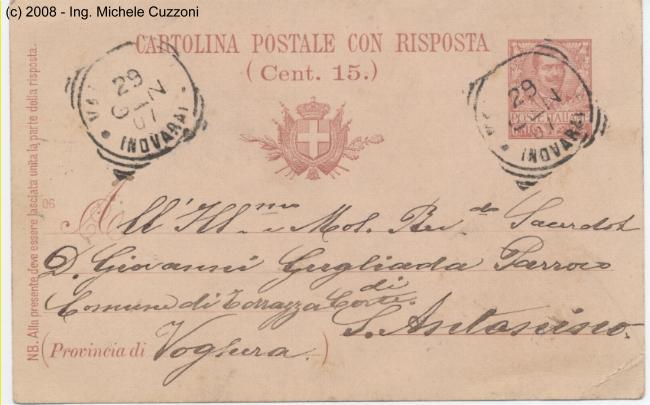 (c) 2008 - Ing. Michele Cuzzoni
CARTOLINA POSTALE CON RISPOSTA
(Cent. 15.)
29
GEN
07
(NOVARA)
29
GEN
07
(NOVARA)
POSTE ITALIANE
NB. Alla presente deve essere lasciata unita la parte della risposta.
06
All' Ill.mo e Mol. Rev.do Sacerdot
D. Giovanni Gugliada Parroco
di
Comune di Torrazza Corte
S. Antonino.
(Provincia di Voghera)